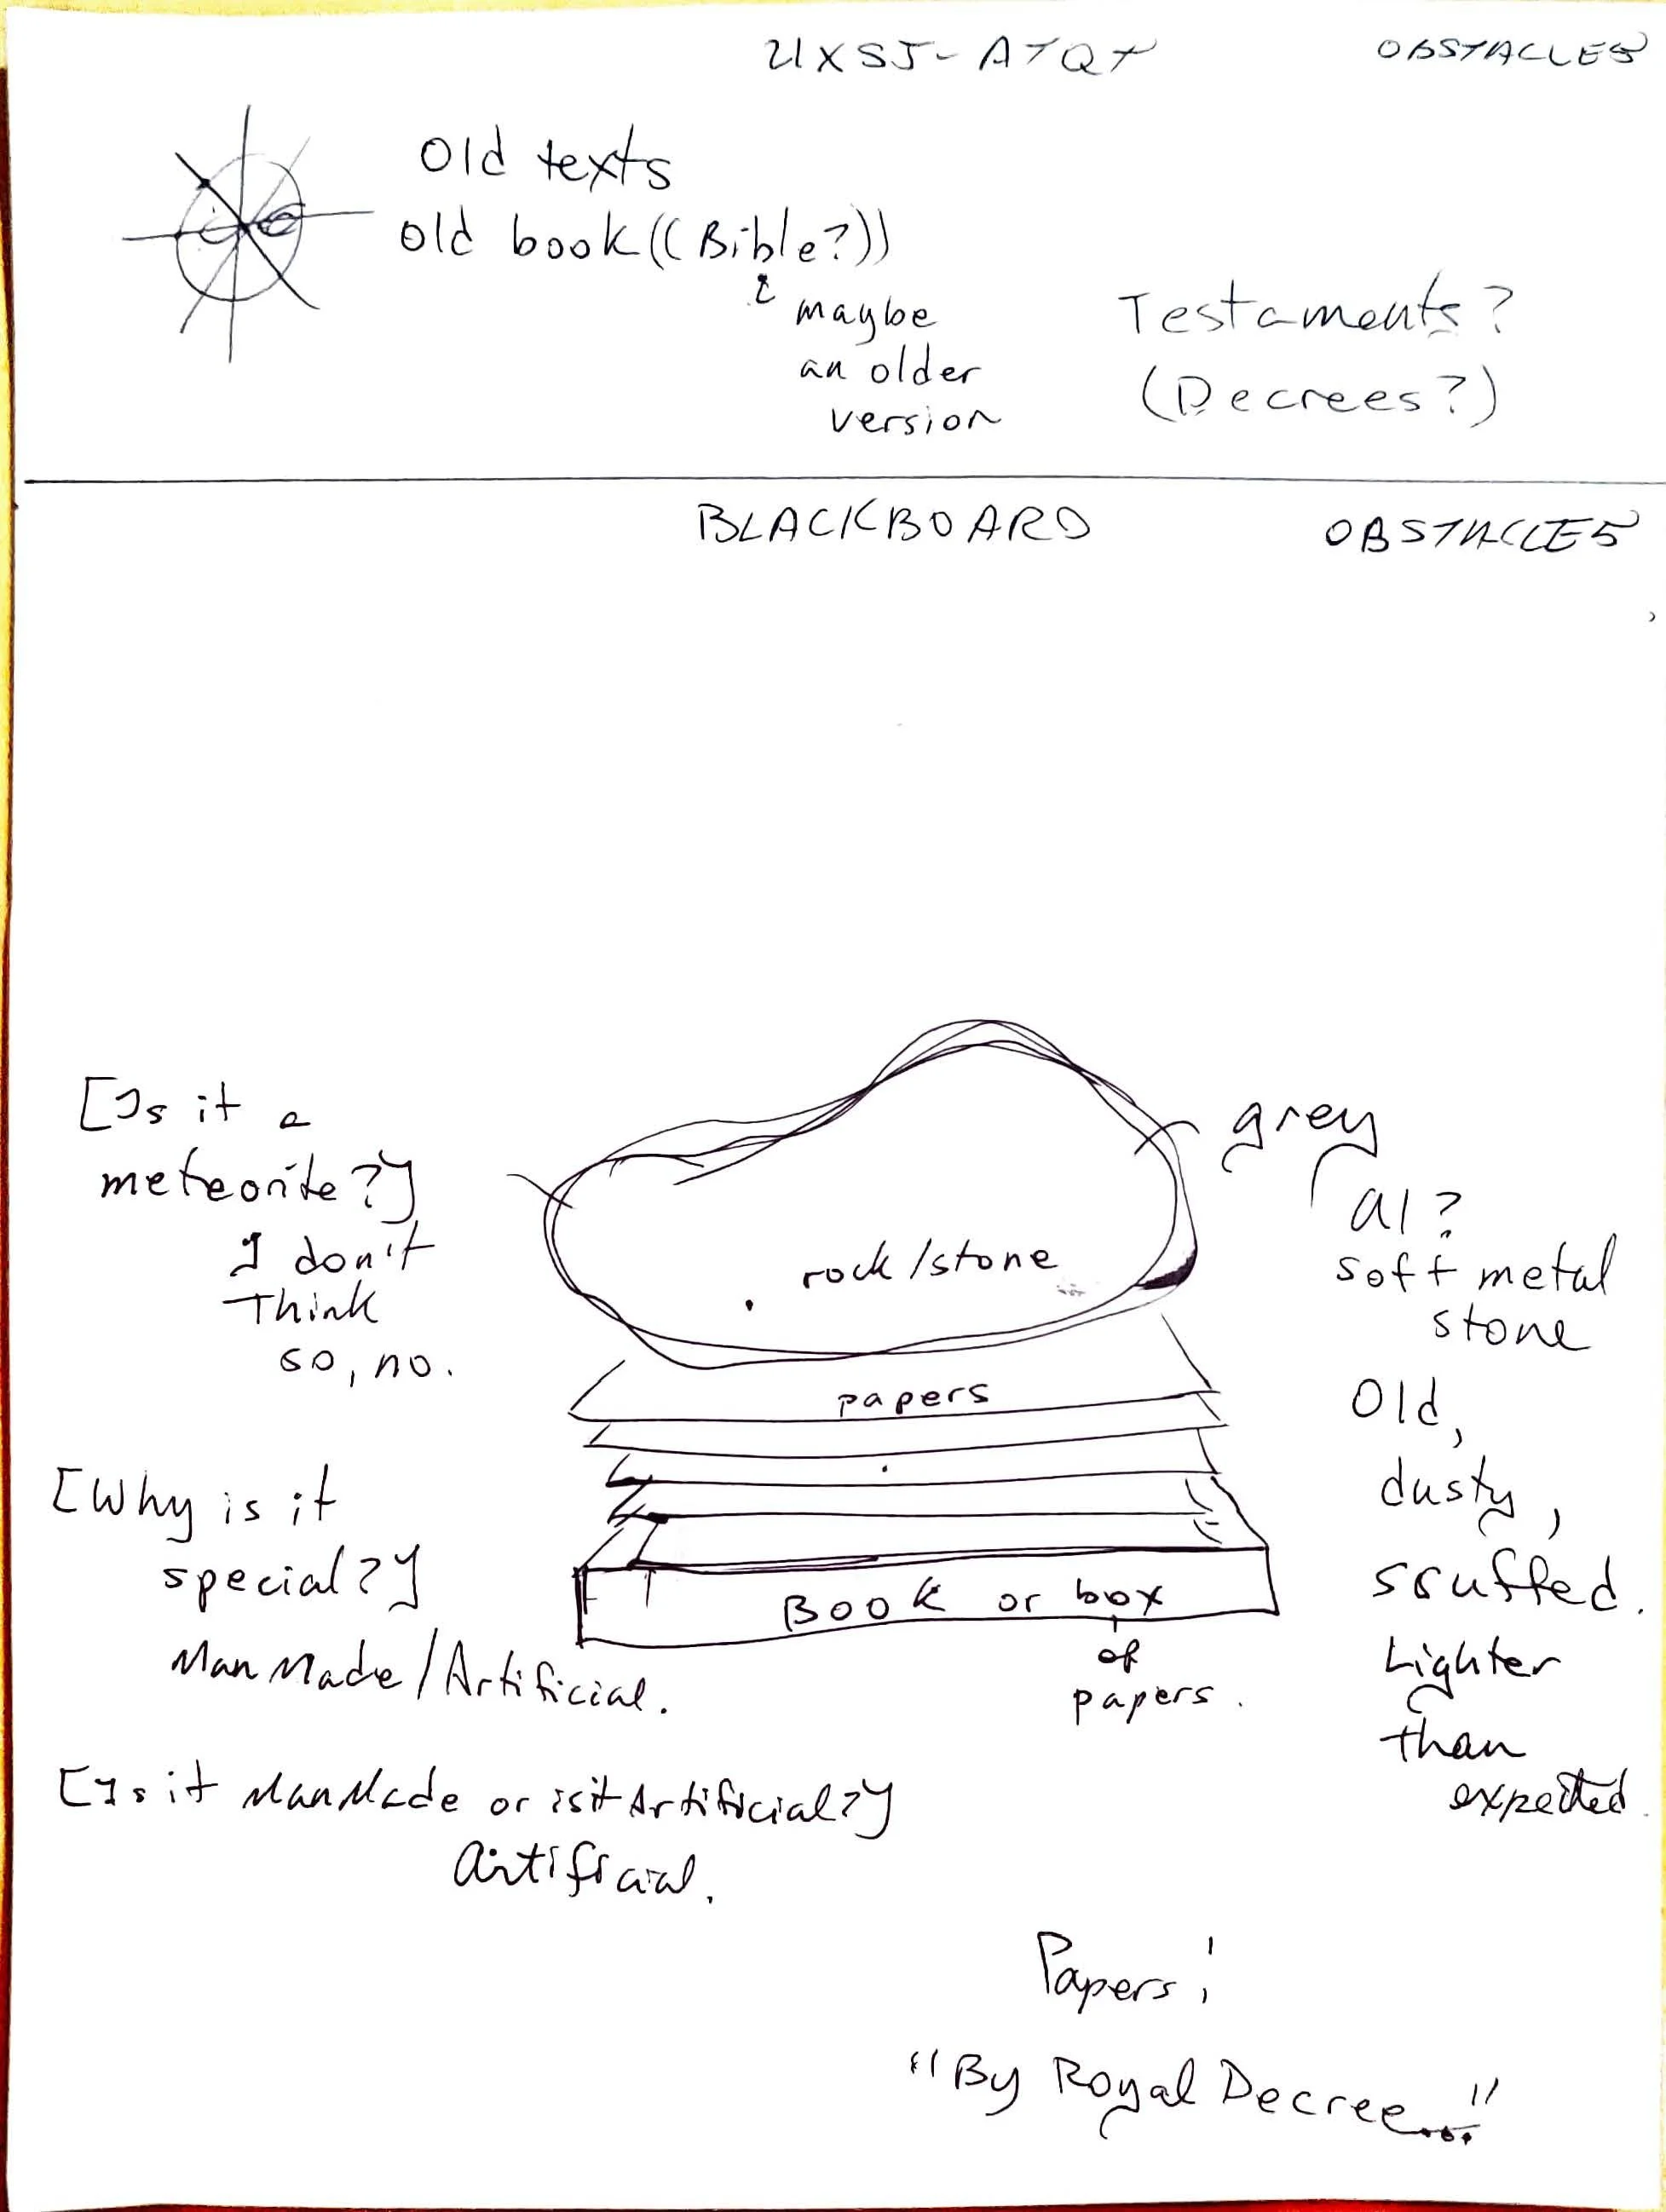 UXSJ-ATQT
OBSTACLES
Old texts
old book ((Bible?))
maybe
an older
version
Testaments?
(Decrees?)
BLACKBOARD
OBSTACLES
[Is it a
meteorite?]
I don't
Think
so, no.
grey
al?
soft metal
stone
rock/stone
papers
Old,
dusty,
scuffed.
Lighter
than
expected.
[Why is it
special?]
Man Made/Artificial.
Book or box
of
papers.
[Is it ManMade or is it Artificial?]
Artificial.
Papers:
"By Royal Decree..."